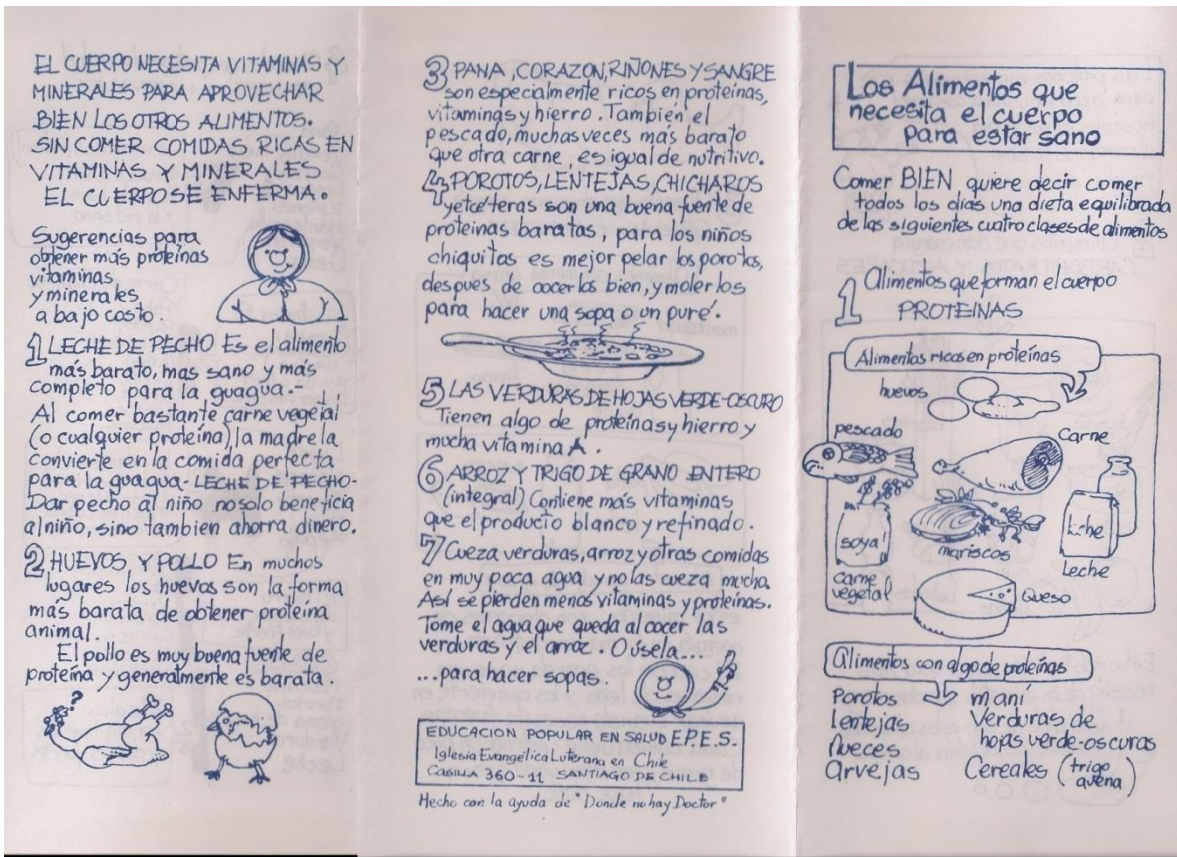 EL CUERPO NECESITA VITAMINAS Y
MINERALES PARA APROVECHAR
BIEN LOS OTROS ALIMENTOS.
SIN COMER COMIDAS RICAS EN
VITAMINAS Y MINERALES
EL CUERPO SE ENFERMA.
Sugerencias para
obtener más proteínas
vitaminas
y minerales
a bajo costo.
1 LECHE DE PECHO Es el alimento
más barato, mas sano y más
completo para la guagua.-
Al comer bastante carne vegetal
(o cualquier proteína) la madre la
convierte en la comida perfecta
para la guagua-LECHE DE PECHO-
Dar pecho al niño no solo beneficia
al niño, sino tambien ahorra dinero.
2 HUEVOS, Y POLLO En muchos
lugares los huevos son la forma
más barata de obtener proteína
animal.
El pollo es muy buena fuente de
proteína y generalmente es barata.
?
3 PANA, CORAZON, RIÑONES Y SANGRE
son especialmente ricos en proteínas,
vitaminas y hierro. También el
pescado, muchas veces más barato
que otra carne, es igual de nutritivo.
4 POROTOS, LENTEJAS, CHICHAROS
y etcéteras son una buena fuente de
proteinas baratas, para los niños
chiquitos es mejor pelar los porotos,
despues de cocerlos bien, y molerlos
para hacer una sopa o un puré.
5 LAS VERDURAS DE HOJAS VERDE-OSCURO
Tienen algo de proteínas y hierro y
mucha vitamina A.
6 ARROZ Y TRIGO DE GRANO ENTERO
(integral) Contiene más vitaminas
que el producto blanco y refinado.
7 Cueza verduras, arroz y otras comidas
en muy poca agua y no las cueza mucho.
Así se pierden menos vitaminas y proteínas.
Tome el agua que queda al cocer las
verduras y el arroz. O úsela...
...para hacer sopas.
EDUCACION POPULAR EN SALUD E.P.E.S.-
Iglesia Evangélica Luterana en Chile
CASILLA 360-11 SANTIAGO DE CHILE
Hecho con la ayuda de "Donde no hay Doctor"
Los Alimentos que
necesita el cuerpo
para estar sano
Comer BIEN quiere decir comer
todos los días una dieta equilibrada
de las siguientes cuatro clases de alimentos
1 Alimentos que forman el cuerpo
PROTEINAS
Alimentos ricos en proteínas
huevos
pescado
Carne
soya
leche
mariscos
Leche
carne
vegetal
Queso
Alimentos con algo de proteínas
Porotos
lentejas
Nueces
arvejas
maní
Verduras de
hojas verde-oscuras
Cereales (trigo
avena)